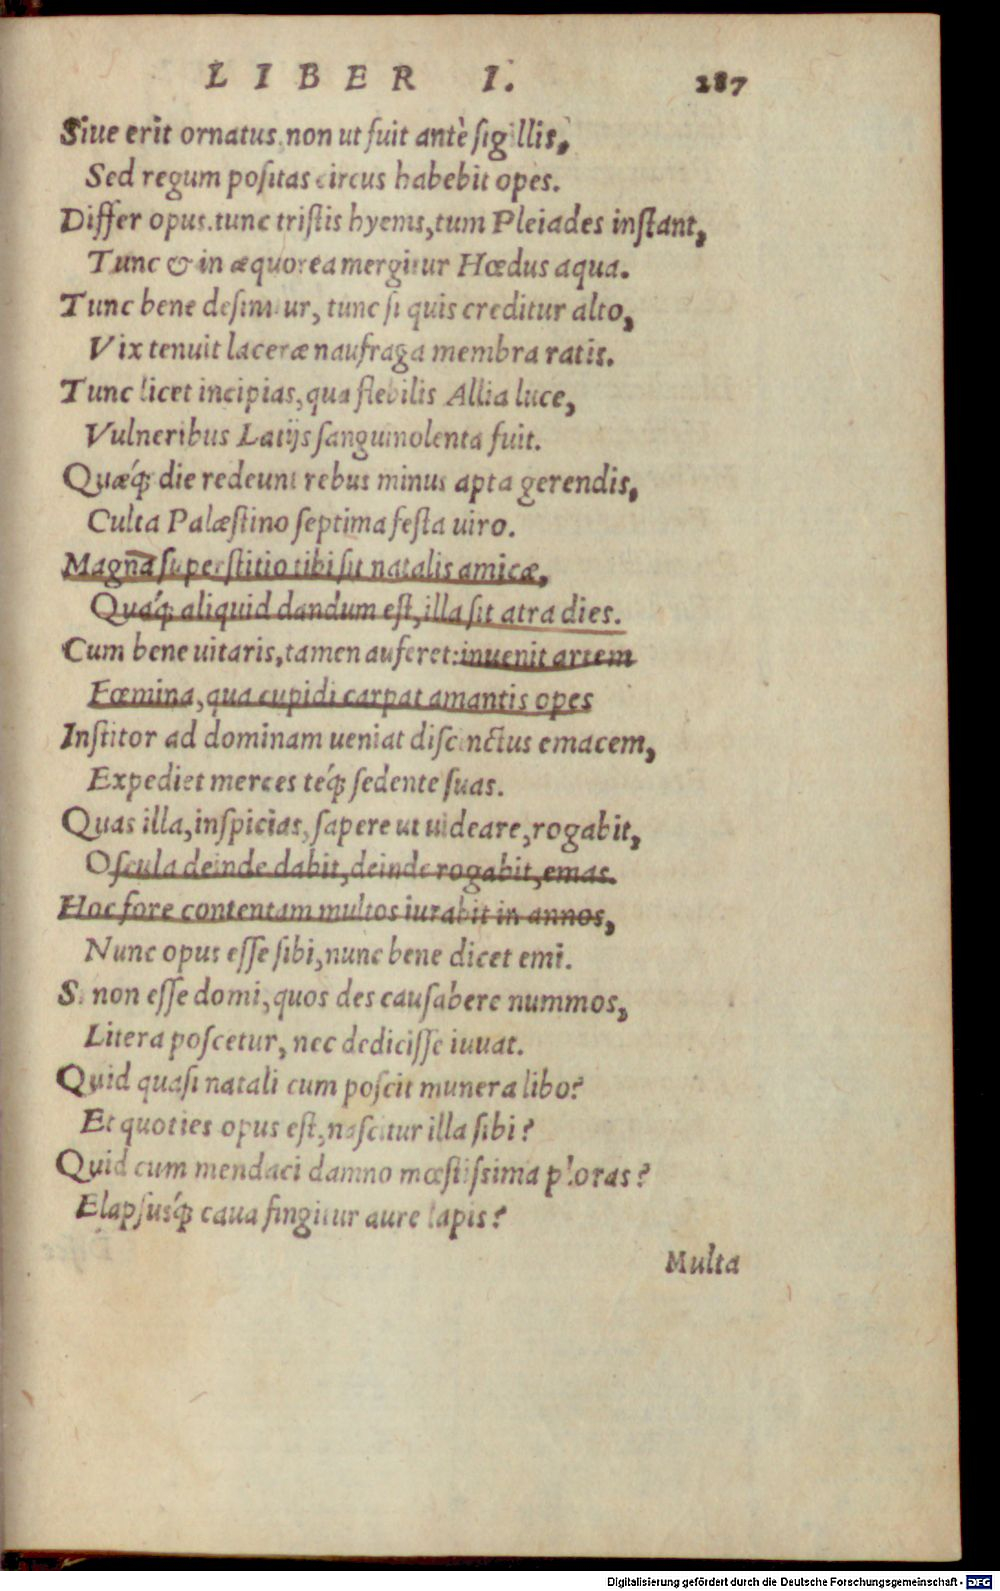 LIBER I. 287
Siue erit ornatus, non ut fuit antè sigillis,
Sed regum positas circus habebit opes.
Differ opus. tunc tristis hyems, tum Pleiades instant,
Tunc & in æquorea mergitur Hœdus aqua.
Tunc bene desinitur, tunc si quis creditur alto,
Vix tenuit laceræ naufraga membra ratis.
Tunc licet incipias, qua flebilis Allia luce,
Vulneribus Latijs sanguinolenta fuit.
Quæq́; die redeunt rebus minus apta gerendis,
Culta Palæstino septima festa uiro.
Magna superstitio tibi sit natalis amicæ,
Quáq; aliquid dandum est, illa sit atra dies.
Cum bene uitaris, tamen auferet: inuenit artem
Fœmina, qua cupidi carpat amantis opes
Institor ad dominam ueniat discinctus emacem,
Expediet merces téq; sedente suas.
Quas illa, inspicias, sapere ut uideare, rogabit,
Oscula deinde dabit, deinde rogabit, emas.
Hoc fore contentam multos iurabit in annos,
Nunc opus esse sibi, nunc bene dicet emi.
Si non esse domi, quos des causabere nummos,
Litera poscetur, nec dedicisse iuuat.
Quid quasi natali cum poscit munera libo?
Et quoties opus est, nascitur illa sibi?
Quid cum mendaci damno mœstissima ploras?
Elapsusq́; caua fingitur aure lapis?
Multa
Digitalisierung gefördert durch die Deutsche Forschungsgemeinschaft - DFG